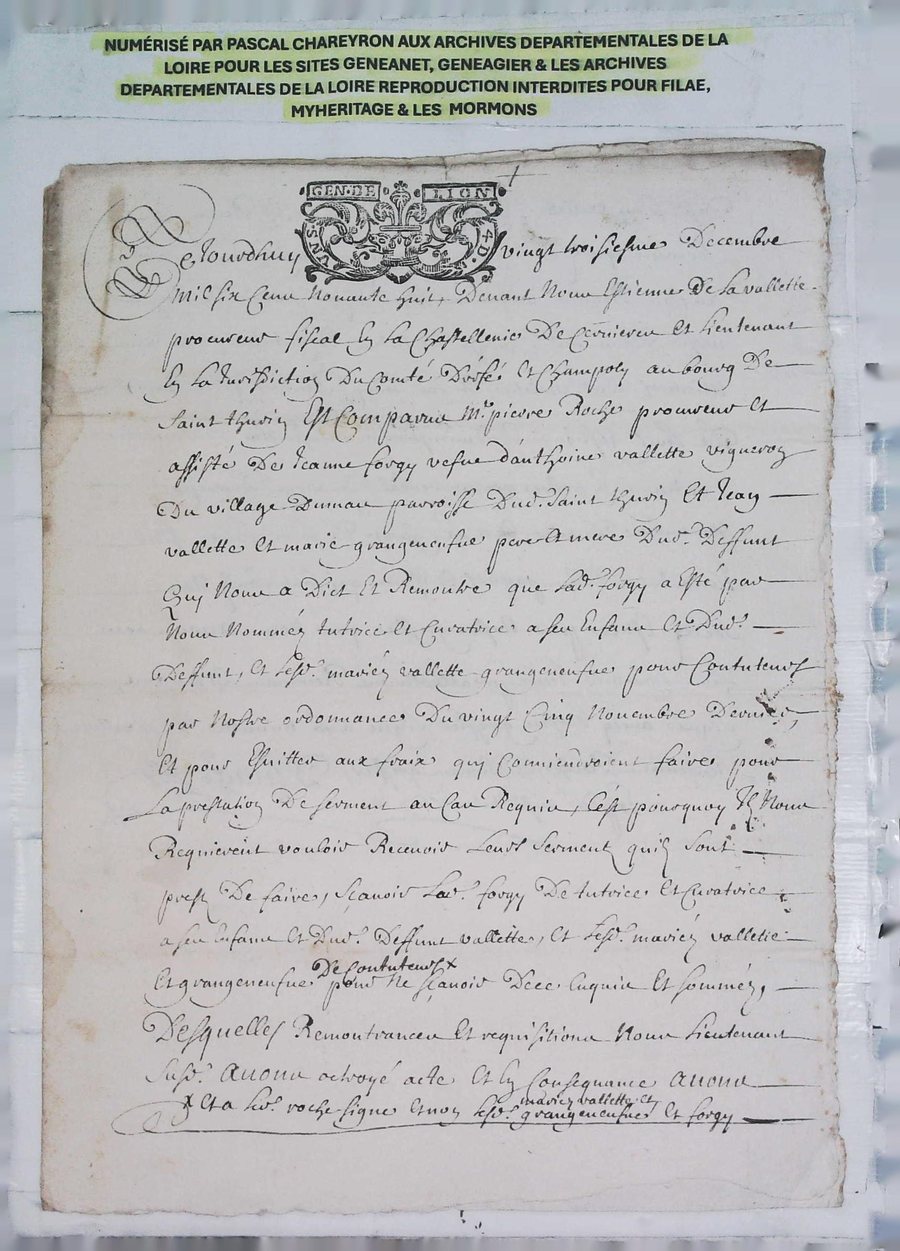 NUMÉRISÉ PAR PASCAL CHAREYRON AUX ARCHIVES DEPARTEMENTALES DE LA
LOIRE POUR LES SITES GENEANET, GENEAGIER & LES ARCHIVES
DEPARTEMENTALES DE LA LOIRE REPRODUCTION INTERDITES POUR FILAE,
MYHERITAGE & LES MORMONS
GEN·DE LION
UN S 4 D
Cejourdhuy vingt troisiesme Decembre
mil six Cens nonante huit, Devant Nous Estienne De la vallette
procureur fiscal En La Chastellenie De Cervieres Et Lieutenant
En La Jurisdiction Du Comté Dursé Et Champoly au bourg De
Saint thurin Est Comparus Mr. pierre Roche procureur Et
assisté De Jeanne forgy vefve d'anthoine vallette vigneron
Du village Dumas parroisse Dud. Saint thurin Et Jean
vallette Et marie grangeneufve pere Et mere Dud. Deffunt
Qui Nous a Dict Et Remontre que Lad. forgy a Esté par
Nous Nommée tutrice Et Curatrice a ses Enfans Et Dud.
Deffunt, Et Lesd. mariés vallette grangeneufve pour Contuteurs
par Nostre ordonnance Du vingt Cinq Novembre Dernier,
Et pour Esvitter aux fraix qui Conviendroient faire pour
La prestation De serment au Cas Requis, C'est pourquoy Il Nous
Requierent vouloir Recevoir Leurs serments quils sont
prests De faire, sçavoir Lad. forgy De tutrice Et Curatrice
a ses Enfans Et Dud. Deffunt vallette, Et Lesd. mariés vallette
De Contuteurs x
Et grangeneufve pour Ne sçavoir De ce Enquis Et sommés,
Desquelles Remontrances Et requisitions Nous Lieutenant
Susd. Avons octroyé acte Et En Consequance Avons
x Et a led. roche signé Et non lesd. mariés vallette et grangeneufve Et forgy